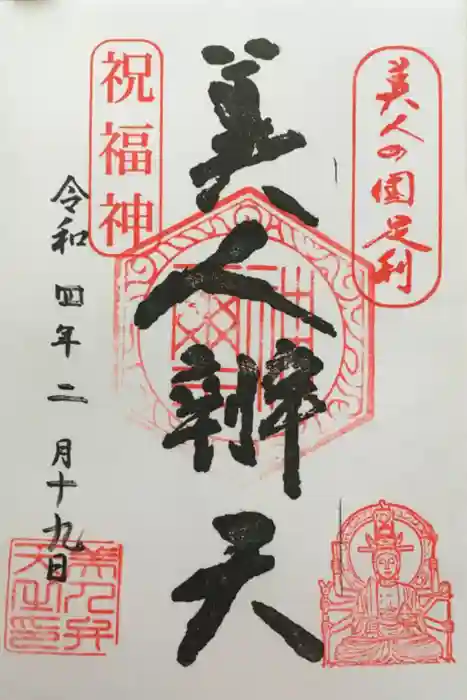 美人の国足利
美人辨天
祝福神
令和四年二月十九日
美人弁
天之印